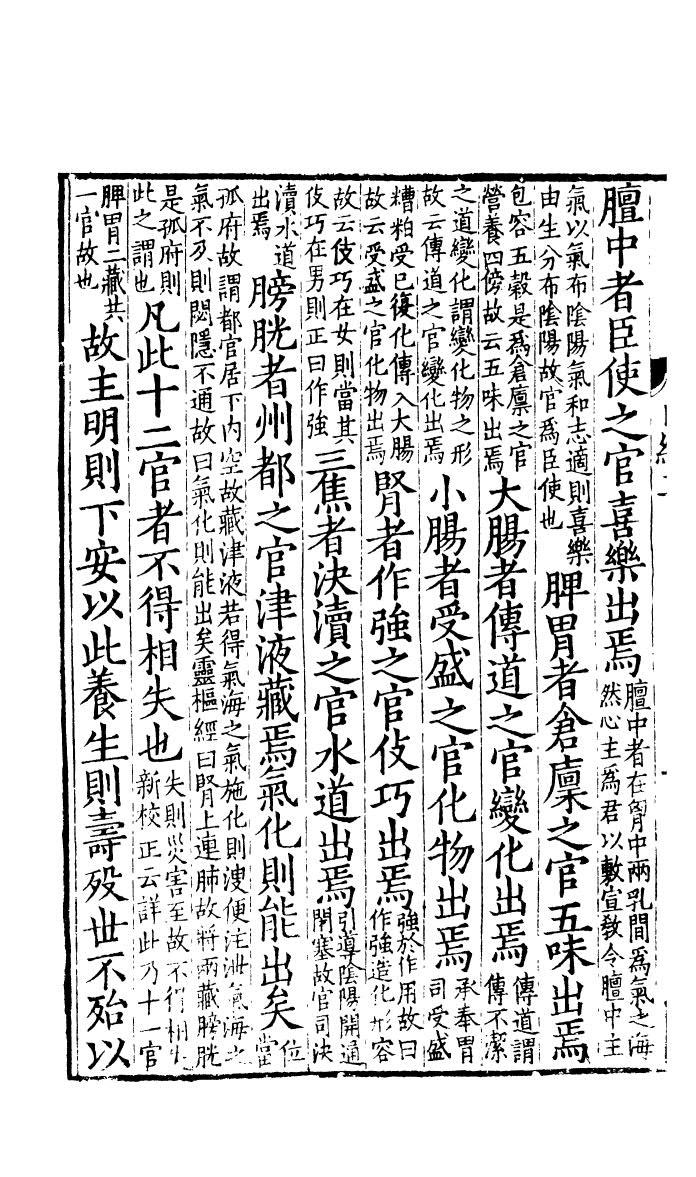 膻中者臣使之官喜樂出焉膻中者在胷中兩乳間爲氣之海然心主爲君以敷宣敎令膻中主
氣以氣布陰陽氣和志適則喜樂由生分布陰陽故官爲臣使也脾胃者倉廪之官五味出焉
包容五穀是爲倉廪之官營養四傍故云五味出焉大腸者傳道之官變化出焉傳道謂傳不潔
之道變化謂變化物之形故云傳道之官變化出焉小腸者受盛之官化物出焉承奉胃司受盛
糟粕受已復化傳入大腸故云受盛之官化物出焉腎者作強之官伎巧出焉強於作用故曰作強造化形容
故云伎巧在女則當其伎巧在男則正曰作強三焦者決瀆之官水道出焉引導陰陽開通閉塞故官司決
瀆水道出焉膀胱者州都之官津液藏焉氣化則能出矣位當
孤府故謂都官居下内空故藏津液若得氣海之氣施化則溲便注泄氣海之氣不及則閟隱不通故曰氣化則能出矣靈樞經曰腎上連肺故將兩藏膀胱
是孤府則此之謂也凡此十二官者不得相失也失則災害至故不得相失新校正云詳此乃十一官
脾胃二藏共一官故也故主明則下安以此養生則壽歿世不殆以